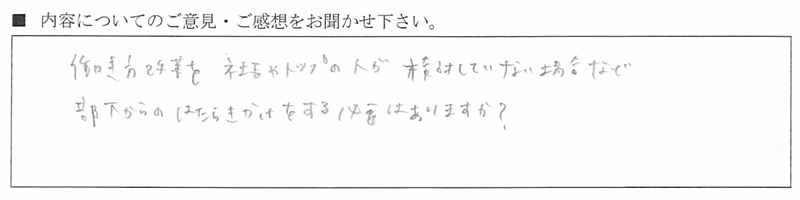 ■ 内容についてのご意見・ご感想をお聞かせ下さい。
働き方改革を 社長やトップの人が 検討していない場合など
部下からの はたらきかけをする必要はありますか?